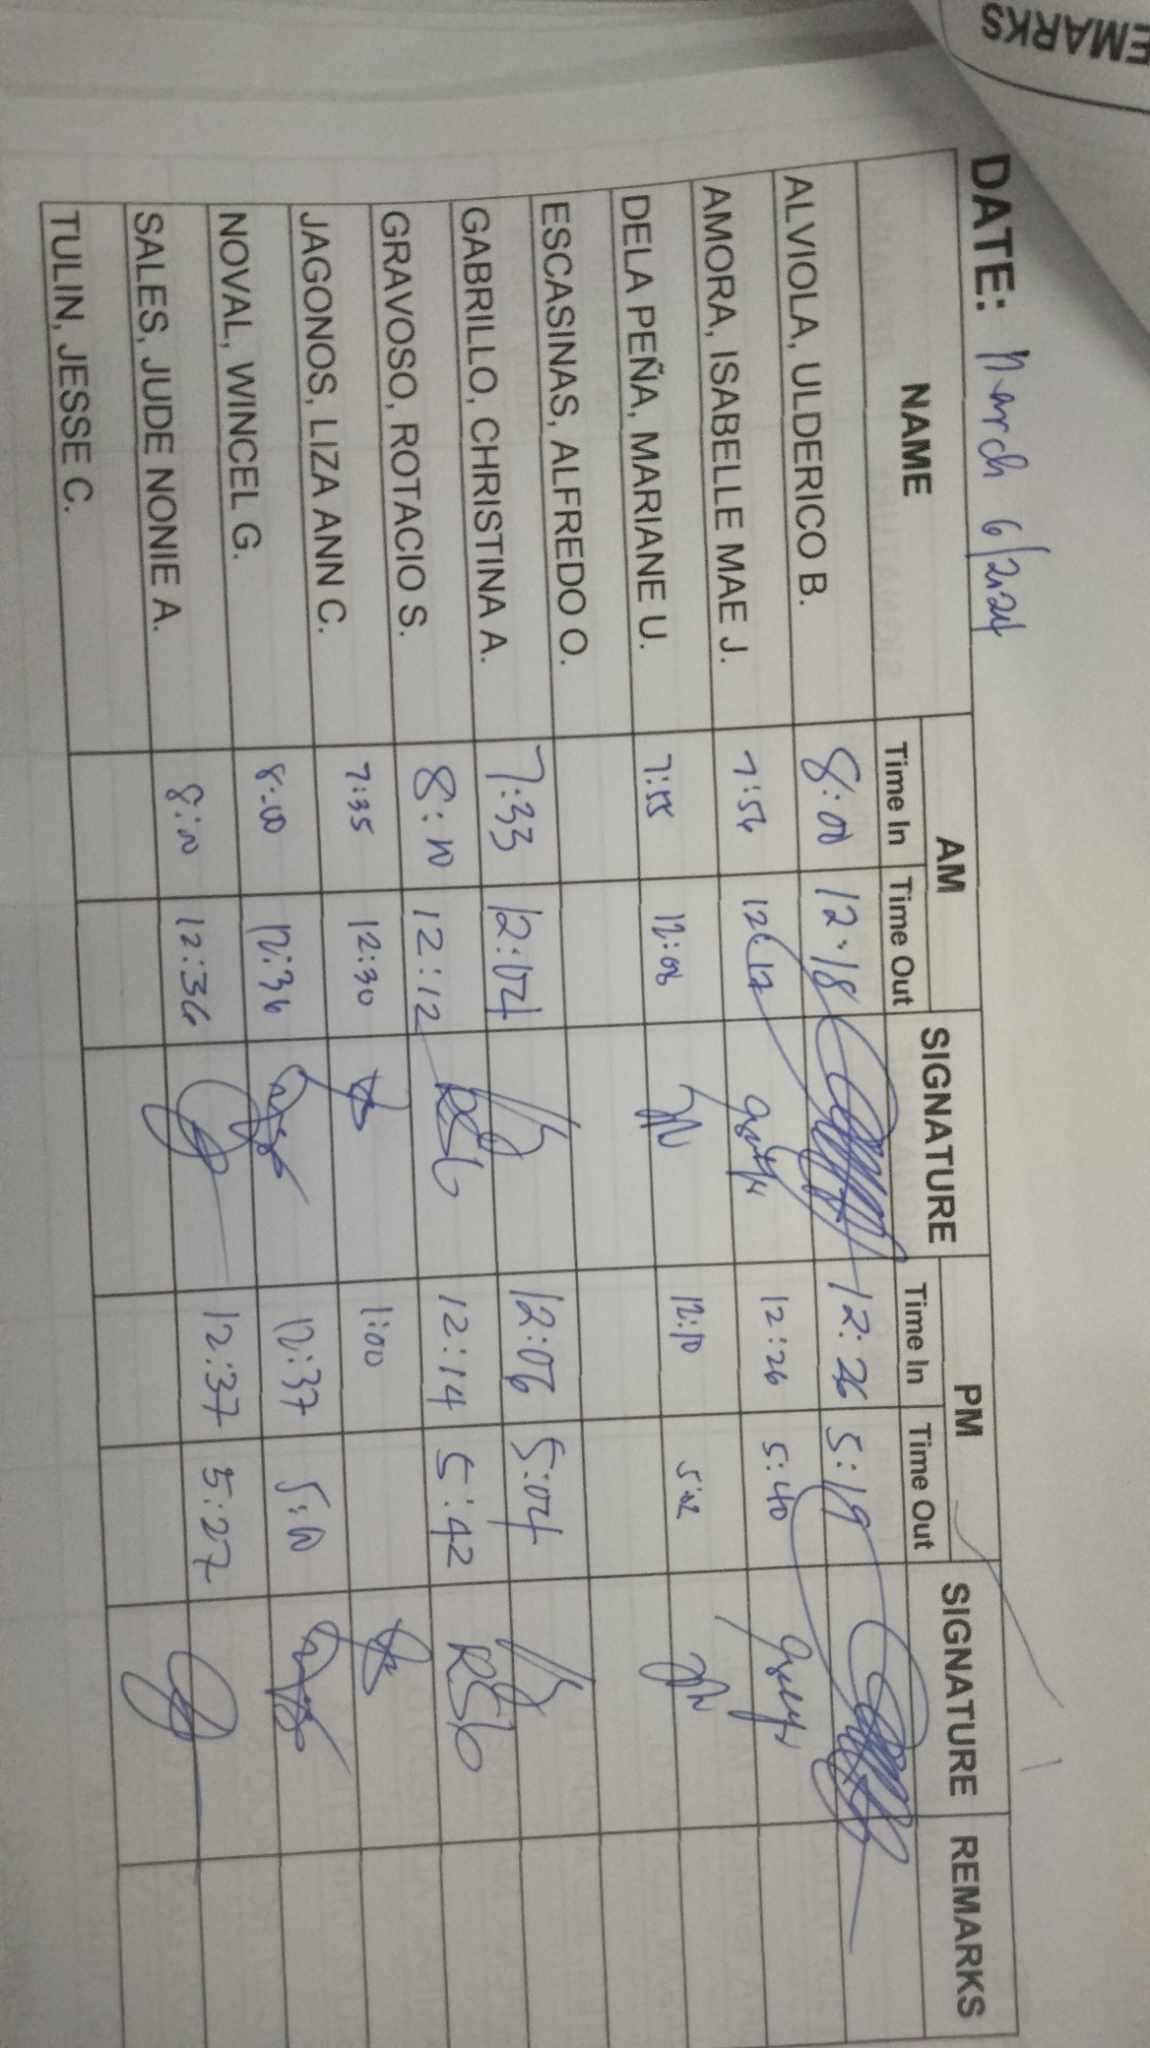 EMARKS
DATE: March 6/2024
NAME AM SIGNATURE PM SIGNATURE REMARKS
Time In Time Out Time In Time Out
ALVIOLA, ULDERICO B. 8:00 12:18 12:26 5:19
AMORA, ISABELLE MAE J. 7:56 12:17 12:26 5:40
DELA PEÑA, MARIANE U. 7:55 12:08 12:10 5:02
ESCASINAS, ALFREDO O.
GABRILLO, CHRISTINA A. 7:33 12:04 12:06 5:04
GRAVOSO, ROTACIO S. 8:10 12:12 RSG 12:14 5:42 RSG
JAGONOS, LIZA ANN C. 7:35 12:30 1:00
NOVAL, WINCEL G. 8:00 12:36 12:37 5:10
SALES, JUDE NONIE A. 8:10 12:36 12:37 5:27
TULIN, JESSE C.